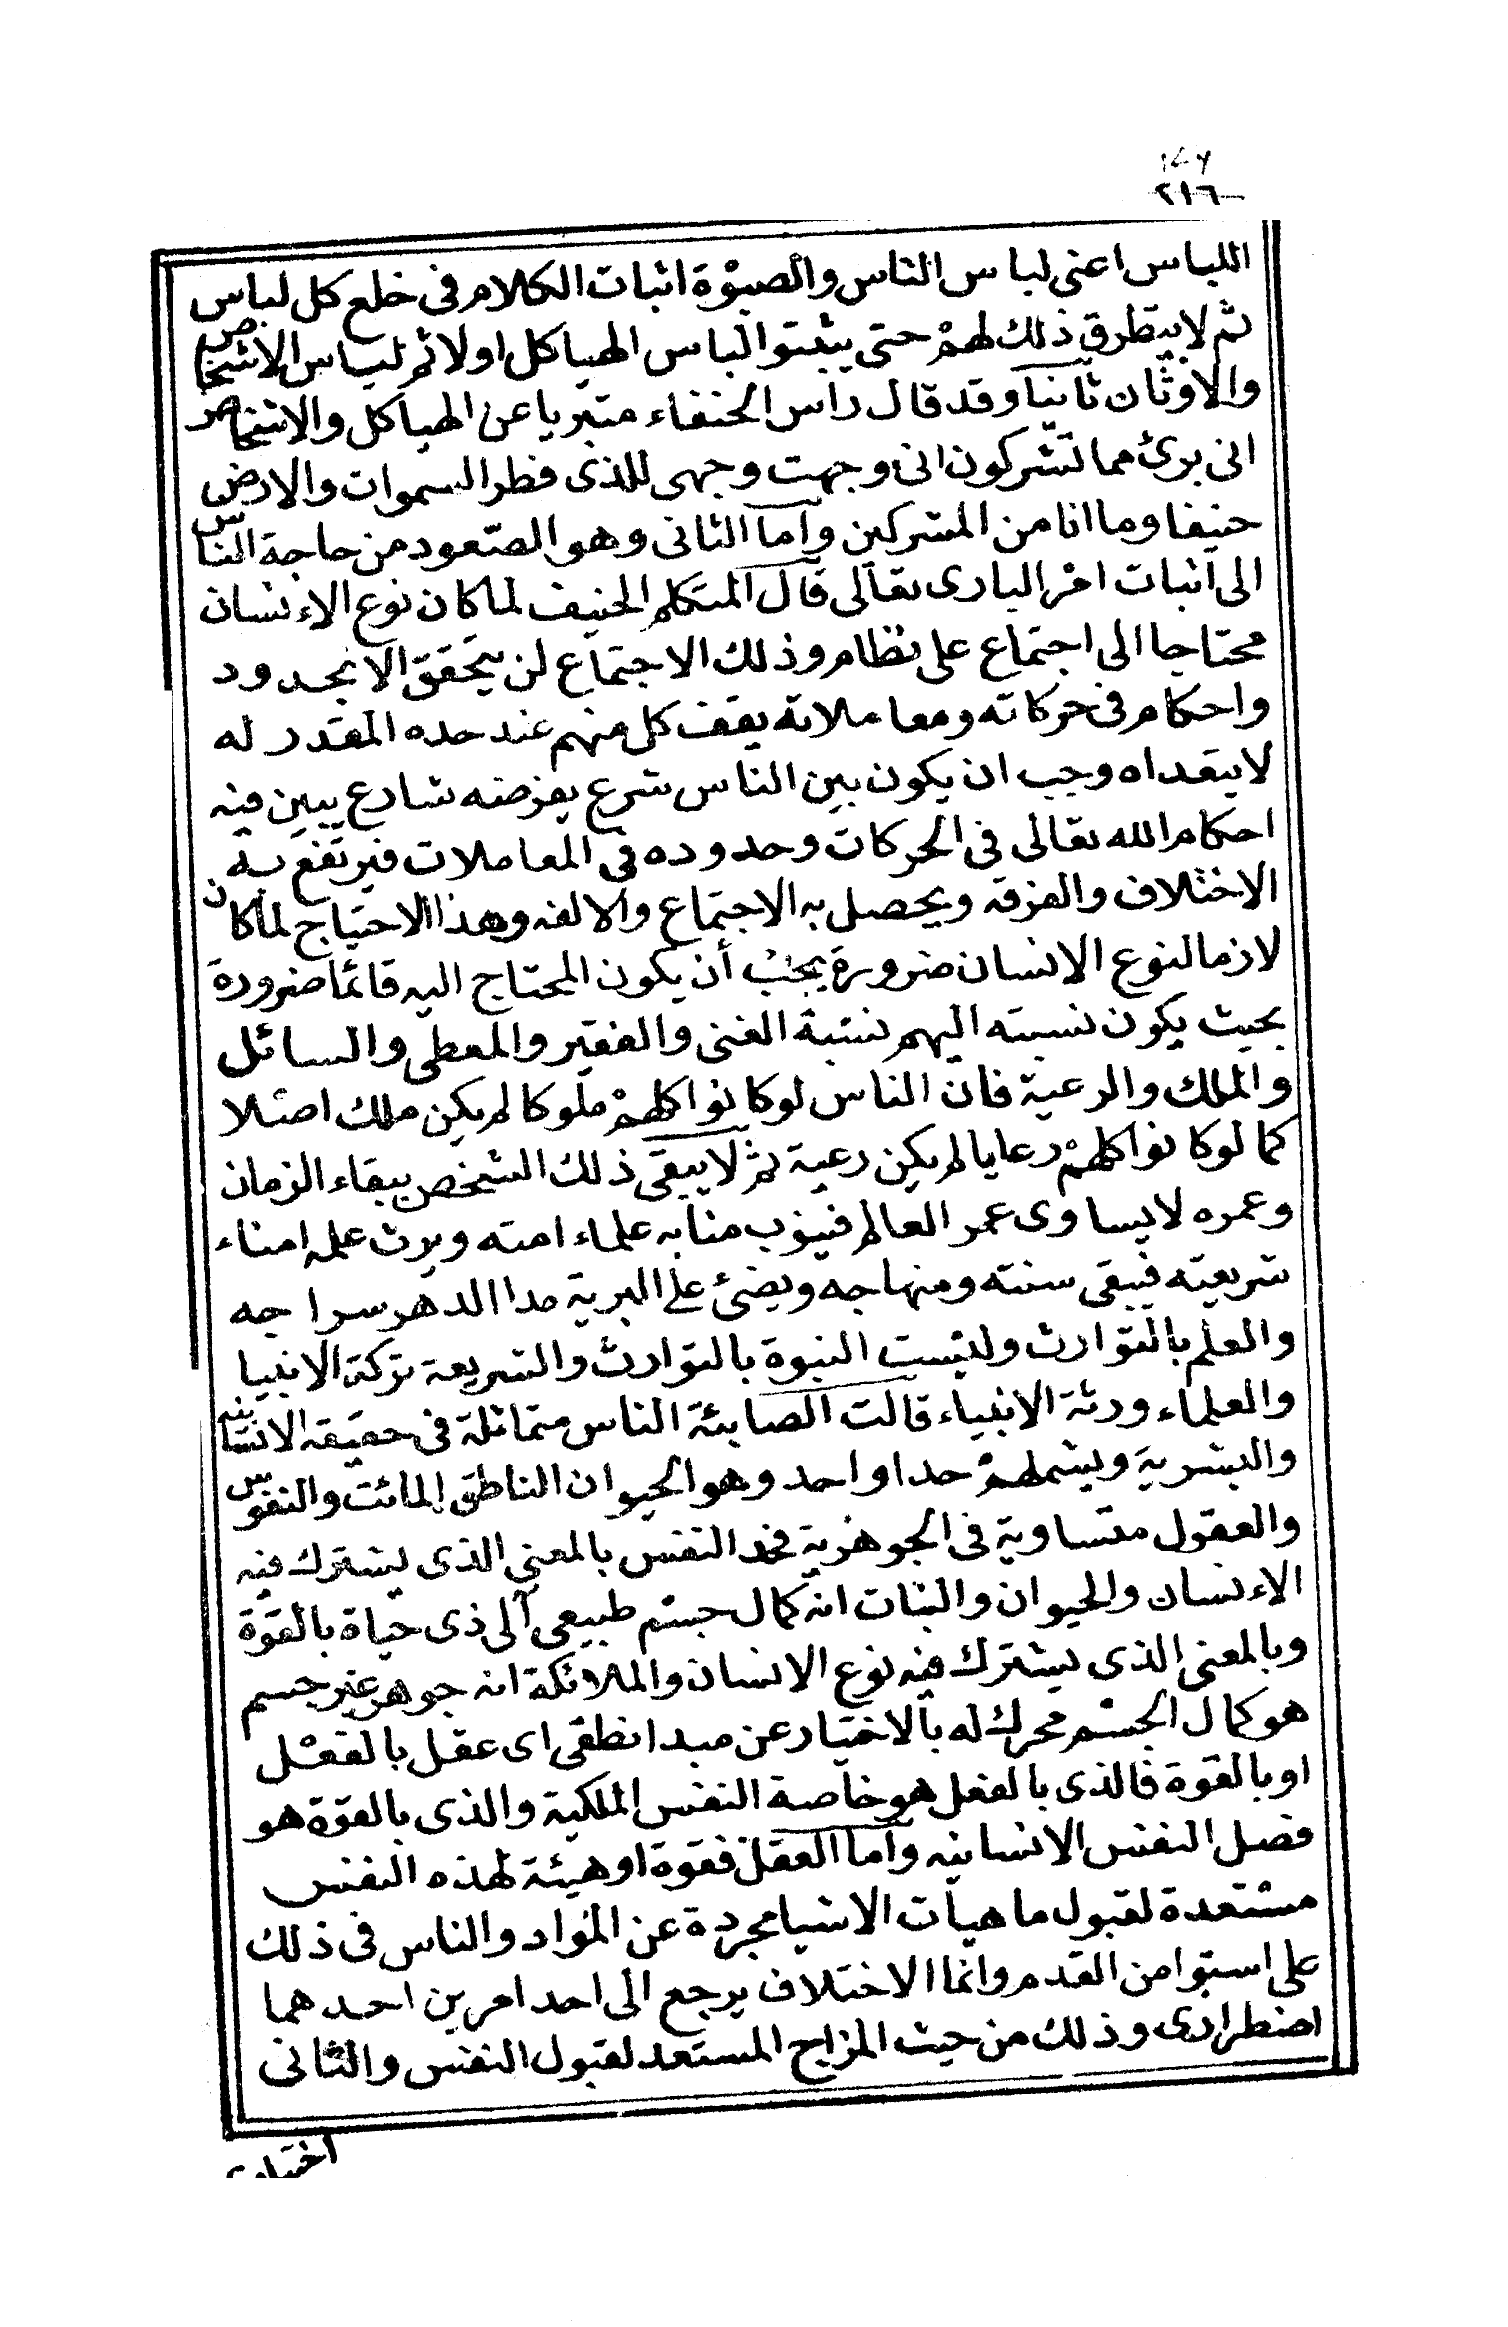 ١٤٧
٢١٦
اللباس اعنى لباس الناس والصبوة اثبات الكلام فى خلع كل لباس
ثم لا يتطرق ذلك لهم حتى يثبتوا الباس الهياكل اولا ثم لباس الاشخاص
والاوثان ثانيا وقد قال راس الحنفاء متبريا عن الهياكل والاشخاص
انى برئ مما تشركون انى وجهت وجهى للذى فطر السموات والارض
حنيفا وما انا من المشركين واما الثانى وهو الصعود من حاجة الناس
الى اثبات امر البارى تعالى قال المتكلم الحنيف لما كان نوع الاءنسان
محتاجا الى اجتماع على نظام وذلك الاجتماع لن يتحقق الا بحدود
واحكام فى حركاته ومعاملاته يقف كل منهم عند حده المقدر له
لا يتعداه وجب ان يكون بين الناس شرع يفرضه شارع يبين فيه
احكام الله تعالى فى الحركات وحدوده فى المعاملات فيرتفع به
الاختلاف والفرقه ويحصل به الاجتماع والالفه وهذا الاحتياج لما كان
لازما لنوع الانسان ضرورة يجب أن يكون المحتاج اليه قائما ضرورة
بحيث يكون نسبته اليهم نسبة الغنى والفقير والمعطى والسائل
والملك والرعية فان الناس لو كانوا كلهم ملوكا لم يكن ملك اصلا
كما لو كانوا كلهم رعايا لم يكن رعية ثم لا يبقى ذلك الشخص ببقاء الزمان
وعمره لا يساوى عمر العالم فينوب منابه علماء امته ويرث علمه امناء
شريعته فيبقى سنته ومنهاجه ويضئ على البرية مدا الدهر سراجه
والعلم بالتوارث وليست النبوة بالتوارث والشريعة تركة الانبيا
والعلماء ورثة الانبياء قالت الصابئة الناس متماثلة فى حقيقه الانسانيه
والبشرية ويشملهم حدا واحد وهو الحيوان الناطق المائت والنفوس
والعقول متساوية فى الجوهرية فحد النفس بالمعنى الذى يشترك فيه
الاءنسان والحيوان والنبات انه كمال جسم طبيعى آلى ذى حياة بالقوة
وبالمعنى الذى يشترك فيه نوع الانسان والملائكة انه جوهر غير جسم
هو كمال الجسم محرك له بالاختيار عن مبدا نطقى اى عقل بالفعل
او بالقوة فالذى بالفعل هو خاصة النفس الملكية والذى بالقوة هو
فصل النفس الانسانيه واما العقل فقوة او هيئة لهذه النفس
مستعدة لقبول ماهيات الاشيا مجردة عن المواد والناس فى ذلك
على استوا من القدم وانما الاختلاف يرجع الى احد امرين احدهما
اضطرارى وذلك من حيث المزاج المستعد لقبول النفس والثانى
اختيارى